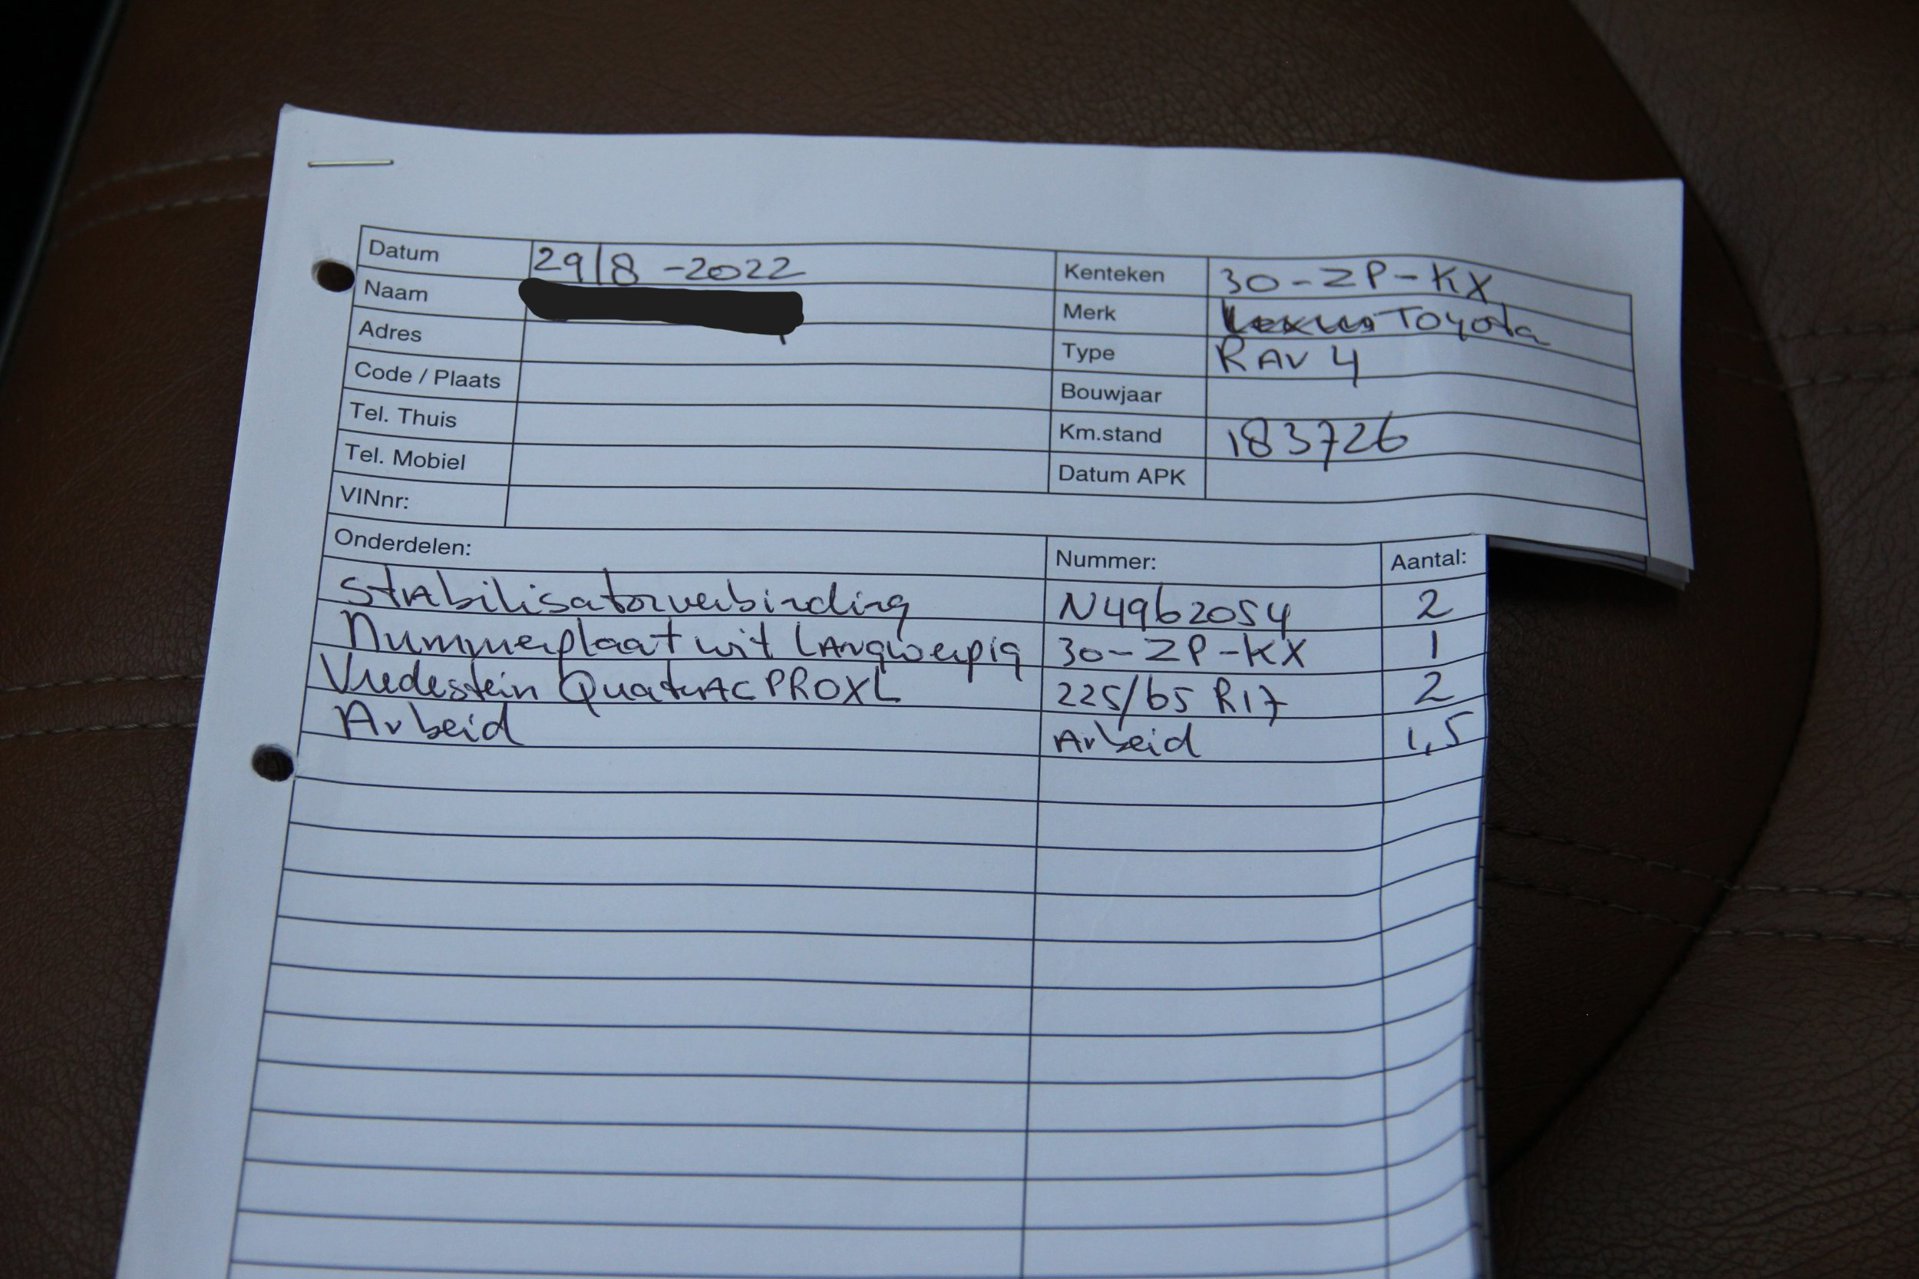 Datum 29/8-2022 Kenteken 30-ZP-KX
Naam Merk Lexus Toyota
Adres Type RAV 4
Code / Plaats Bouwjaar
Tel. Thuis Km.stand 183726
Tel. Mobiel Datum APK
VINnr:
Onderdelen: Nummer: Aantal:
Stabilisatorverbinding N4962054 2
Nummerplaat wit Langwerpig 30-ZP-KX 1
Vredestein QuatrAC PROXL 225/65 R17 2
Arbeid Arbeid 1,5